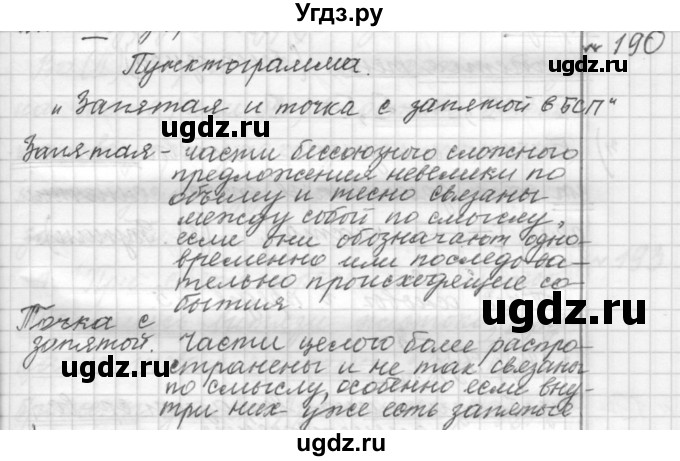 Угдз.ру
190
Пунктограмма.
"Запятая и точка с запятой в БСП"
Запятая - части бессоюзного сложного
предложения невелики по
объему и тесно связаны
между собой по смыслу,
если они обозначают одно-
временно или последова-
тельно происходящие со
бытия
Точка с
запятой. Части целого более распро-
странены и не так связаны
по смыслу, особенно если вну-
три них уже есть запятые
ugdz.ru
ugdz.ru
ugdz.ru
ugdz.ru
ugdz.ru
ugdz.ru
ugdz.ru